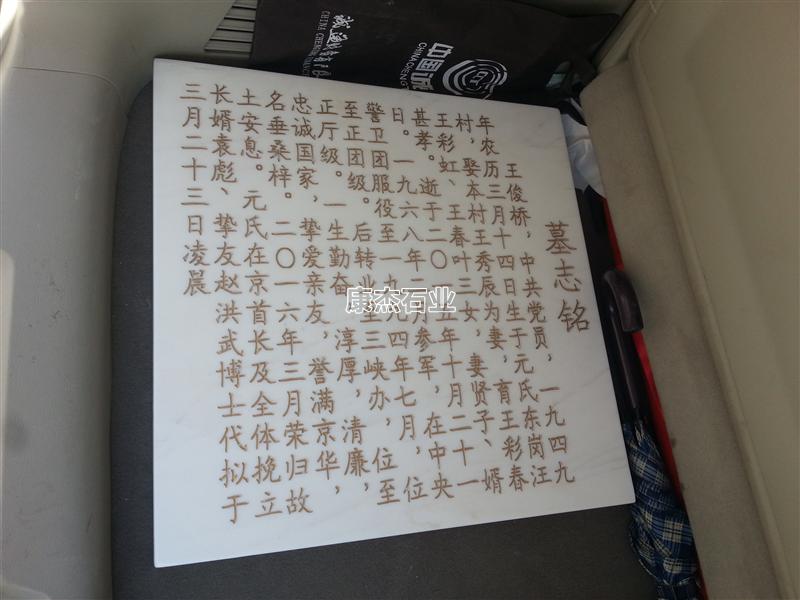 墓志铭
王俊桥，中共党员，一九四九
年农历三月十四日生于元氏东岗汪
村，娶本村王秀辰为妻，育王彩春
王彩虹、王春叶三女，妻贤子、婿
甚孝。逝于二〇一五年十月二十一
日。一九六八年二月参军，在中央
警卫团服役至一九九四年七月，位
至正团级。后转业至三峡办，位至
正厅级。一生勤奋，淳厚，清廉，
忠诚国家，挚爱亲友，誉满京华，
名垂桑梓。二〇一六年三月荣归故
土安息。元氏在京首长及全体挽立
长婿袁彪、挚友赵洪武博士代拟于
三月二十三日凌晨
康杰石业
中国诚
CHINACHENG